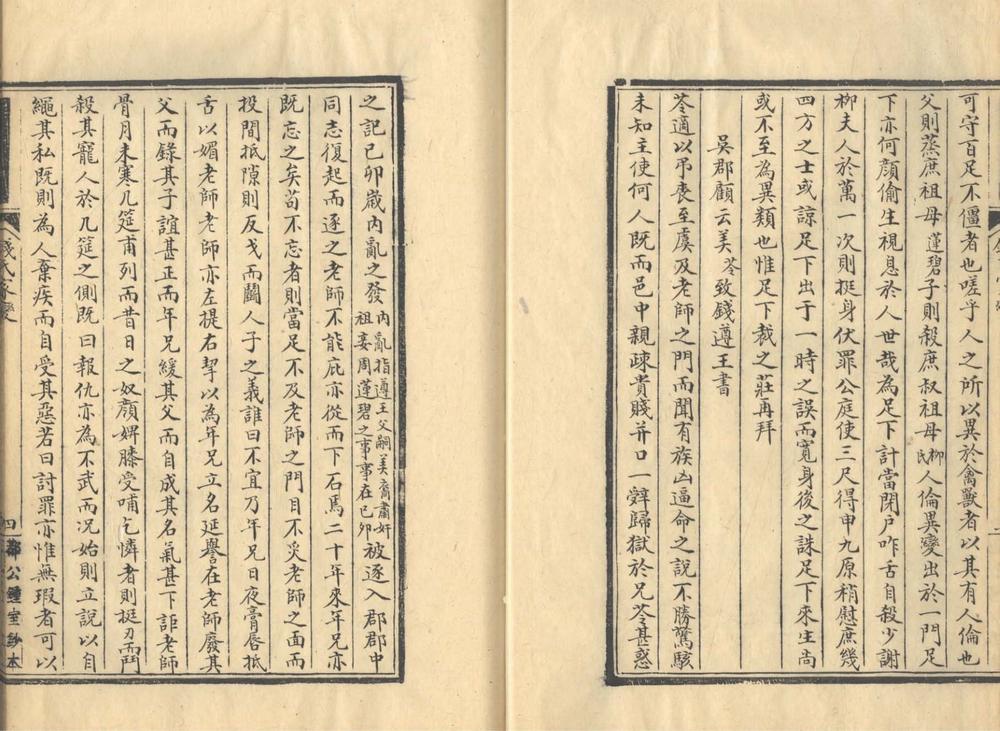 可守百足不僵者也嗟乎人之所以異於禽獸者以其有人倫也
父則蒸庶祖母蓮碧子則殺庶叔祖母柳氏人倫異變出於一門足
下亦何顏偷生視息於人世哉為足下計當閉戶咋舌自殺少謝
柳夫人於萬一次則挺身伏罪公庭使三尺得申九原稍慰庶幾
四方之士或諒足下出于一時之誤而寬身後之誅足下來生尚
或不至為異類也惟足下裁之莊再拜
吳郡顧云美苓致錢遵王書
苓適以弔喪至虞及老師之門而聞有族凶逼命之說不勝驚駭
未知主使何人既而邑中親疎貴賤并口一辤歸獄於兄苓甚惑
之記已卯歲內亂之發內亂指遵王父嗣美裔肅奸祖妾周蓮碧之事事在已卯被逐入郡郡中
同志復起而逐之老師不能庇亦從而下石焉二十年來年兄亦
既忘之矣苟不忘者則當足不及老師之門目不災老師之面而
投間抵隙則反戈而鬬人子之義誰曰不宜乃年兄日夜膏唇抵
舌以媚老師老師亦左提右挈以為年兄立名延譽在老師廢其
父而錄其子誼甚正而年兄緩其父而自成其名氣甚下詎老師
骨月未寒几筵甫列而昔日之奴顏婢膝受哺乞憐者則挺刃而鬥
殺其寵人於几筵之側既曰報仇亦為不武而况始則立說以自
繩其私既則為人棄疾而自受其惡若曰討罪亦惟無瑕者可以
錢氏家變
四
郡公鍾室鈔本